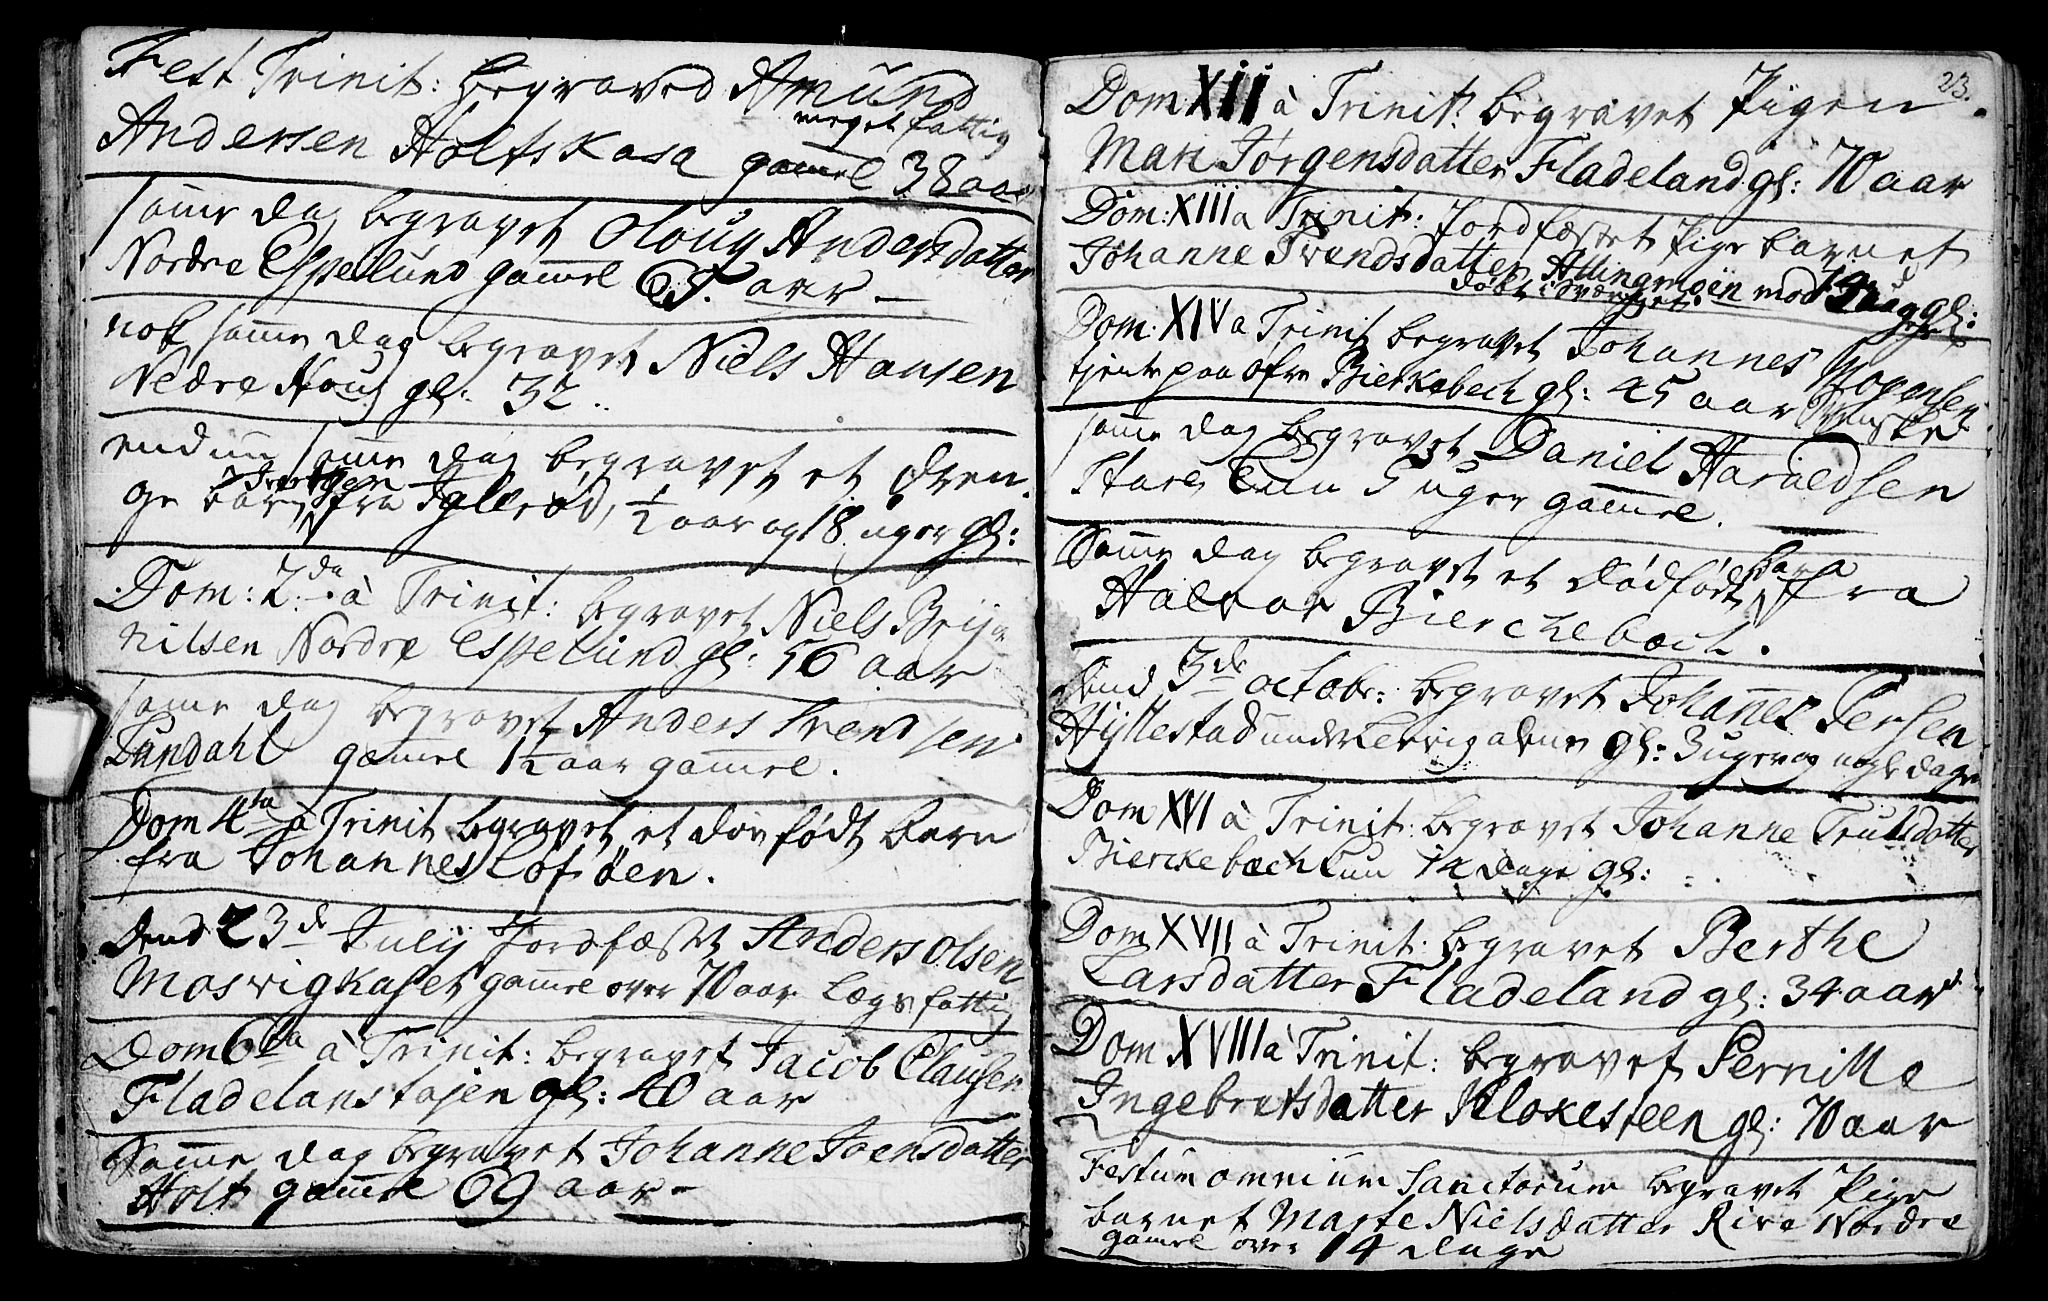 Fest Trinit: begraved Amund
meget fattig
Andersen Holtskasa gamel 38 aar
samme dag begravet Oloug Andersdatter
Nordre Espelund gamel 65. aar
nok samme dag begravet Niels Hansen
Nedre Houg gl: 32.
endnu samme dag begravet et dren-
ge barn fra Iglerød, ½ aar og 18 uger gl:
Dom: 2da à Trinit: begravet Niels
nilsen Nordre Espelund gl: 56 aar
samme dag begravet Anders Svendsen
Lundahl gamel 1½ aar gamel.
Dom 4ta à Trinit begravet et dødfødt barn
fra Johannes Lofsøen.
Dend 23de Julij Jordfæstet Anders Olsen
Mosvigkaset gamel over 70 aar Lægs fattig
Dom 6ta à Trinit: begravet Jacob Clausen
Fladelanstøjen gl: 40 aar
Samme dag begravet Johanne Joensdatter
Holt gamel 69 aar
23.
Dom XII à Trinit: begravet Pigen
Mari Jørgensdatter Fladeland gl: 70 aar
Dom: XIII a Trinit: Jordfæstet Pige barnet
Johanne Svendsdatter Allingmoen
døbt
Dom: XIV a Trinit begravet Johannes Mogensen
tjente paa øfre Bierkebech gl: 45 aar Svenske
samme dag begravet Daniel Haraldsen
Hare kun 5 uger gamel.
Samme dag begravet et dødfødt barn fra
Halvor Bierchebæch.
Dend 3de octobr: begravet Johannes Persen
Hyllestad under gl: 3 uger og nogle dage
Dom XVI à Trinit: begravet Johanne Trulsdatter
Bierckebæch kun 14 dage gl:
Dom XVII à Trinit: begravet Berthe
Larsdatter Fladeland gl: 34 aar
Dom XVIII à Trinit: begravet Pernille
Ingebretsdatter Klokesteen gl: 70 aar
Festum omnium Sanctorum begravet Pige
barnet Marte Nielsdatter Rive Nordre
gamel over 14 dage